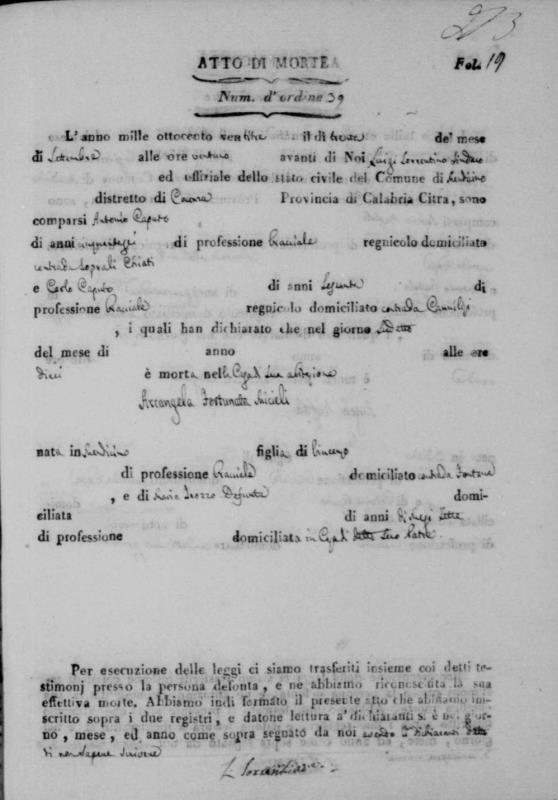 213
ATTO DI MORTE
Fol. 19
Num. d'ordine 39
L'anno mille ottocento ventitre il dì trenta de' mese
di Settembre alle ore ventuno avanti di Noi Luigi Sorrentino Sindaco
ed uffiziale dello stato civile del Comune di
distretto di Provincia di Calabria Citra, sono
comparsi Antonio Caputo
di anni di professione Bracciale regnicolo domiciliato
contrada Soprali Chiati
e Carlo Caputo di anni Sessanta di
professione Bracciale regnicolo domiciliato contrada
, i quali han dichiarato che nel giorno Sudetto
del mese di anno alle ore
dieci è morta nella Casa di Sua abitazione
Arcangela Fortunata Micieli
nata in figlia di Vincenzo
di professione Bracciale domiciliato contrada Fontana
, e di Maria Defunta domi-
ciliata di anni
di professione domiciliata in Casa di detto Suo Padre
Per esecuzione delle leggi ci siamo trasferiti insieme coi detti te-
stimonj presso la persona defonta, e ne abbiamo riconosciuta la sua
effettiva morte. Abbiamo indi formato il presente atto che abbiamo ini-
scritto sopra i due registri, e datone lettura a' dichiaranti s. è nel gior-
no', mese, ed anno come sopra segnato da noi avendo i dichiaranti detto
di non sapere scrivere
L Sorrentino